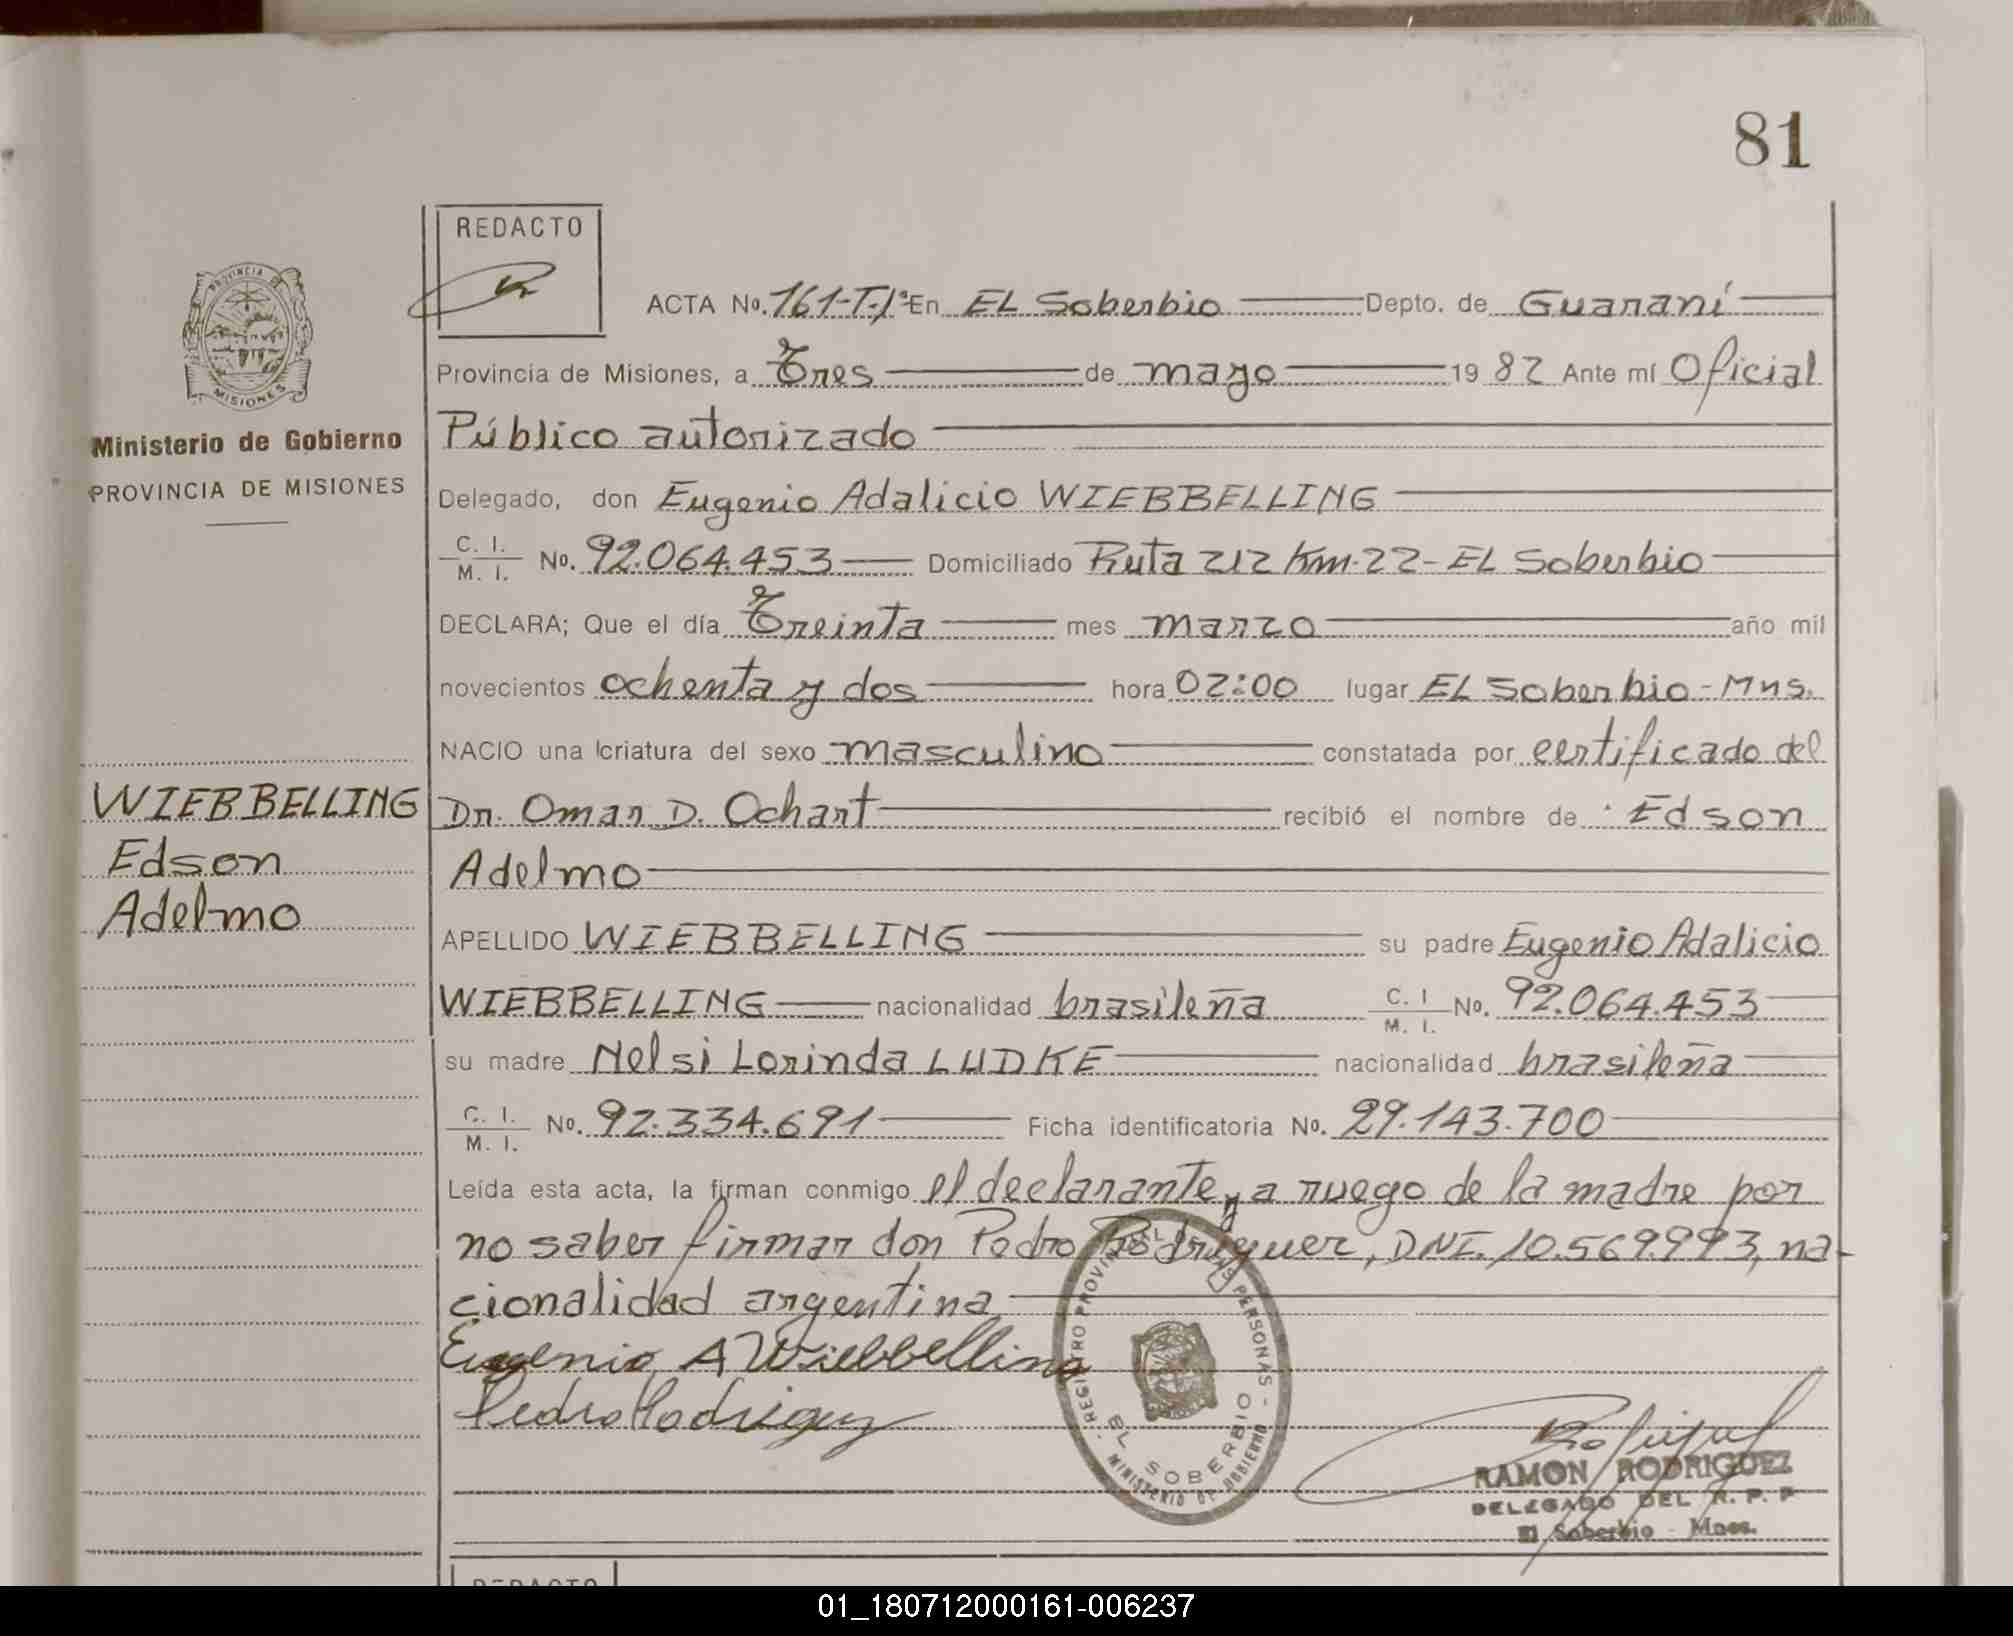 81
REDACTO
PROVINCIA DE
MISIONES
Ministerio de Gobierno
PROVINCIA DE MISIONES
WIEBBELLING
Edson
Adelmo
ACTA No. 161-T-1º- En EL Soberbio Depto. de Guaraní
Provincia de Misiones, a Tres de mayo 1982 Ante mí Oficial
Público autorizado
Delegado, don Eugenio Adalicio WIEBBELLING
C. I. M. I. No. 92.064.453 Domiciliado Ruta 212 Km.22- EL Soberbio
DECLARA; Que el día Treinta mes marzo año mil
novecientos ochenta y dos hora 02:00 lugar EL Soberbio - Mns.
NACIO una criatura del sexo masculino constatada por certificado del
Dr. Omar D. Ochart recibió el nombre de Edson
Adelmo
APELLIDO WIEBBELLING su padre Eugenio Adalicio
WIEBBELLING nacionalidad brasileña C. I M. I. No. 92.064.453
su madre Nelsi Lorinda LUDKE nacionalidad brasileña
C. I. M. I. No. 92.334.691 Ficha identificatoria No. 29.143.700
Leída esta acta, la firman conmigo el declarante, y a ruego de la madre por
no saber firmar don Pedro Rodriguez, DNI. 10.569.993, na-
cionalidad argentina
Eugenio A Wiebbelling
Pedro Rodriguez
REGISTRO PROVINCIAL DE LAS PERSONAS
EL SOBERBIO
MINISTERIO DE GOBIERNO
RAMON RODRIGUEZ
DELEGADO DEL R. P. P
El Soberbio - Mnes.
REDACTO
01_180712000161-006237